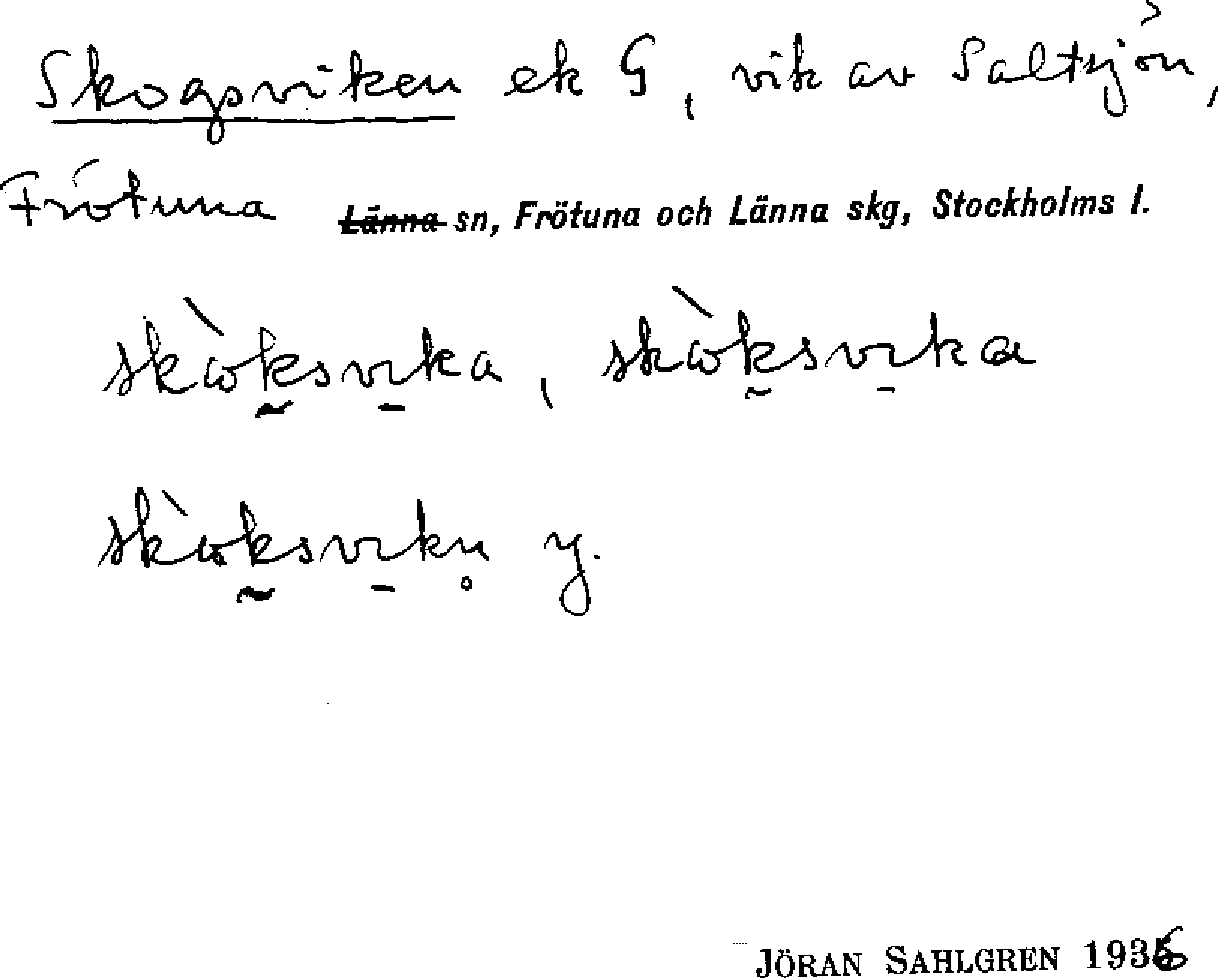 Skogsviken ek G, vik av Saltsjön,
Frötuna Länna sn, Frötuna och Länna skg, Stockholms l.
skὼk̰svi̱ka, skὼk̰svi̱ka
skὼk̰svi̱kn̥ y.
JÖRAN SAHLGREN 1936